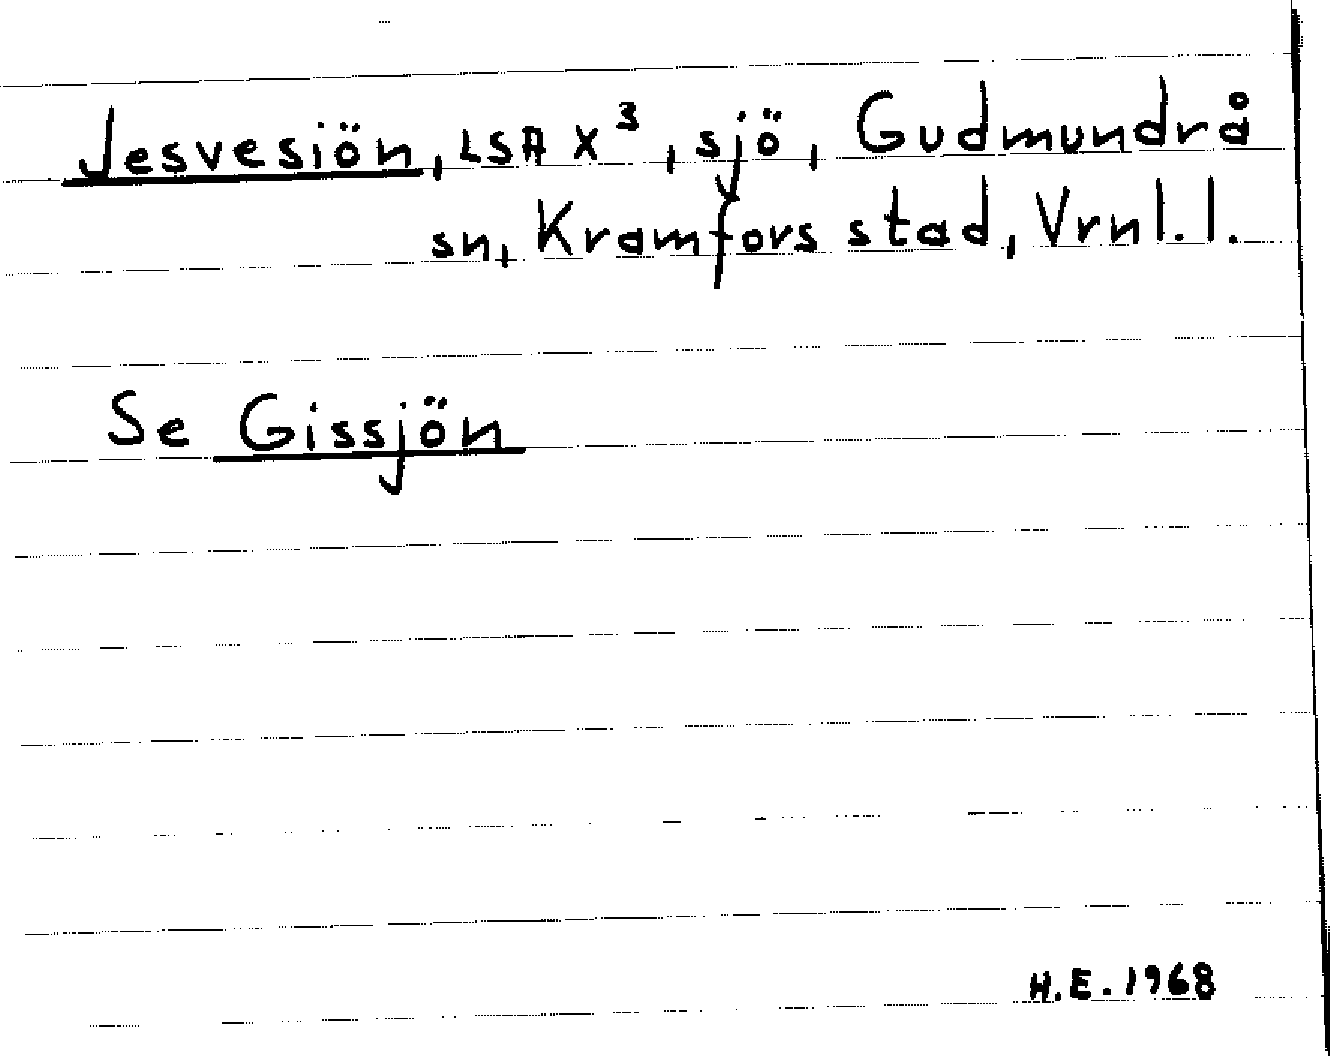 Jesvesiön, LSA X³, sjö, Gudmundrå
sn, Kramfors stad, Vrnl.l.
Se Gissjön
H.E. 1968